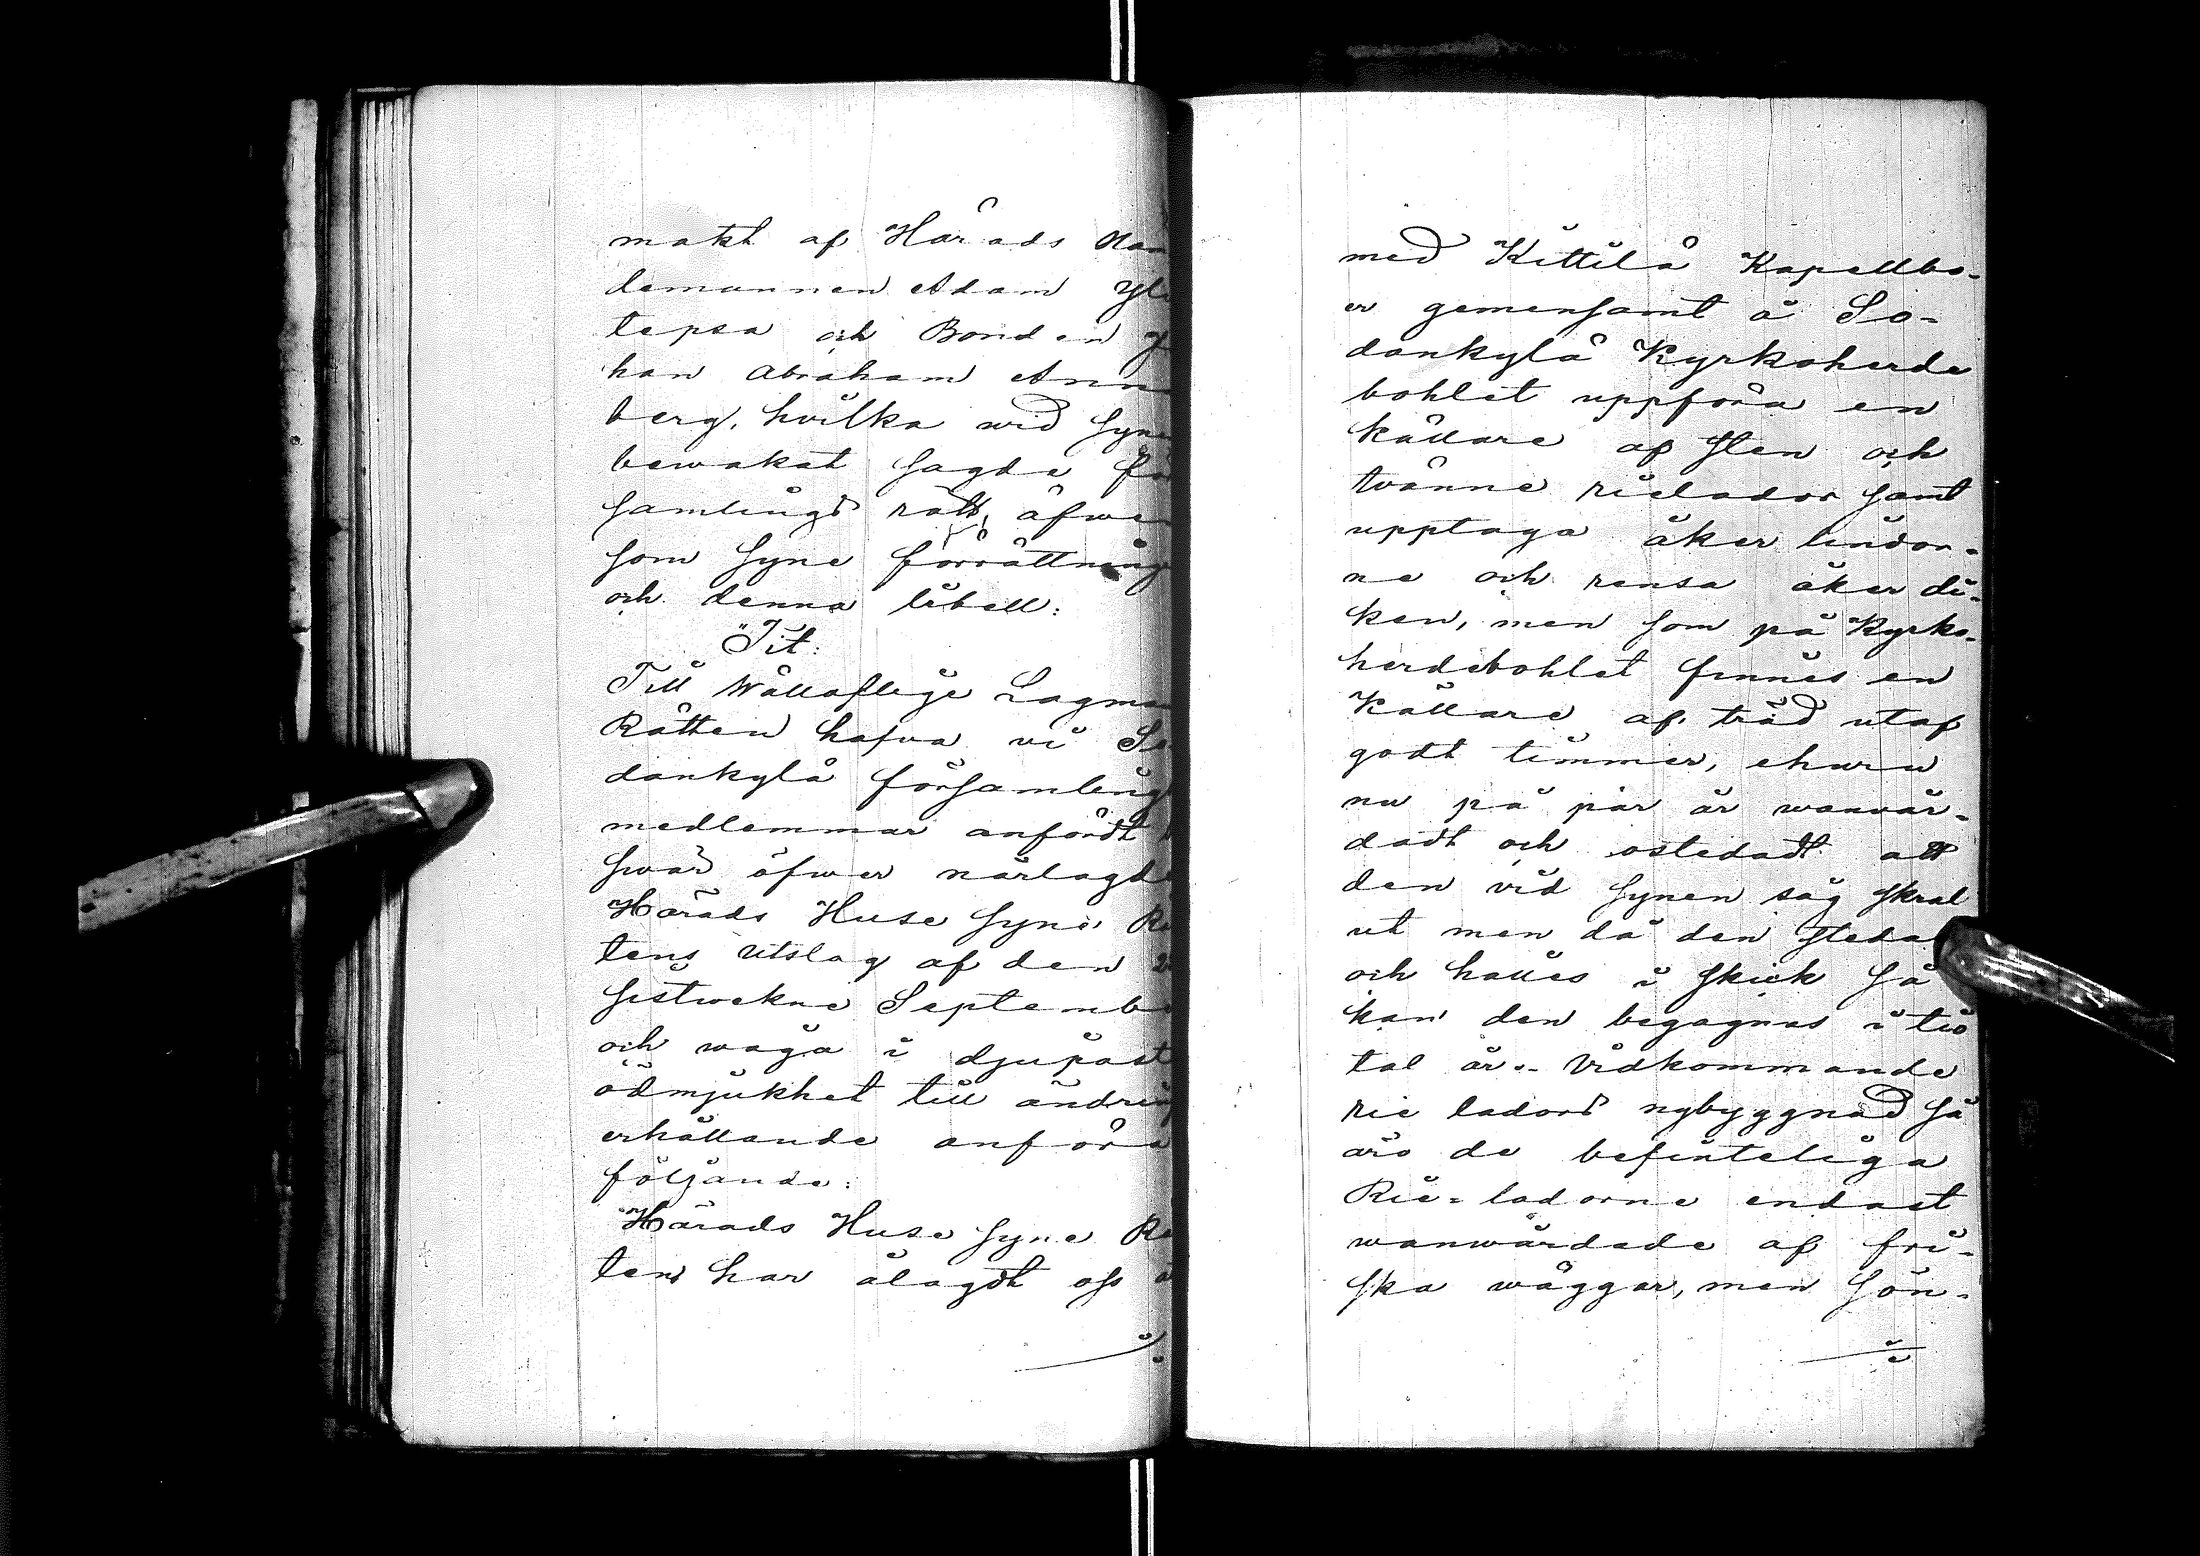 makt af Härads
demannen Adam
tepsa och Bonden
han Abraham
berg, hvilka wid
bewakat sagde
samlings rätt, äfwen
som syne förrättning
och denna libell:
Tit:
Till Wällofliga
Rätten hafva vi
dankylä församling
medlemmar anfördt
swar öfwer närlagde
Härads Huse syne
tens Utslag af den
sistwekne
och wåga i djupast
ödmjukhet till
erhållande anföra
följande:
Härads Huse syne
ten har ålagdt oss
med Kittilä Kapellbo-
er gemensamt å So-
dankylä Kyrkoherde
bohlet uppföra en
källare af sten och
tvänne rielador samt
upptaga åker lindor-
ne och rensa åker di-
ken, men som på Kyrko-
herdebohlet finnes en
Källare af träd utaf
godt timmer, ehuru
nu på pår är wanvär-
dadt och ostedadt att
den vid synen såg skral
ut men då den
och hålles i skick så
kan den begagnas i tio
tal år. Vidkommande
rie ladors nybyggnad så
äro de befinteliga
Rie-ladorne endast
wanwårdade af fri-
ska wäggar, men sön-